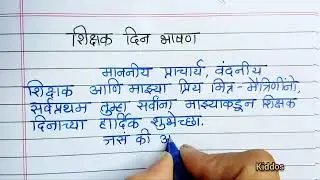 शिक्षक दिन भाषण
माननीय प्राचार्य, वंदनीय
शिक्षक आणि माझ्या प्रिय मित्र-मैत्रिणींनो,
सर्वप्रथम तुम्हा सर्वांना माझ्याकडून शिक्षक
दिनाच्या हार्दिक शुभेच्छा.
जसे की
Kiddos